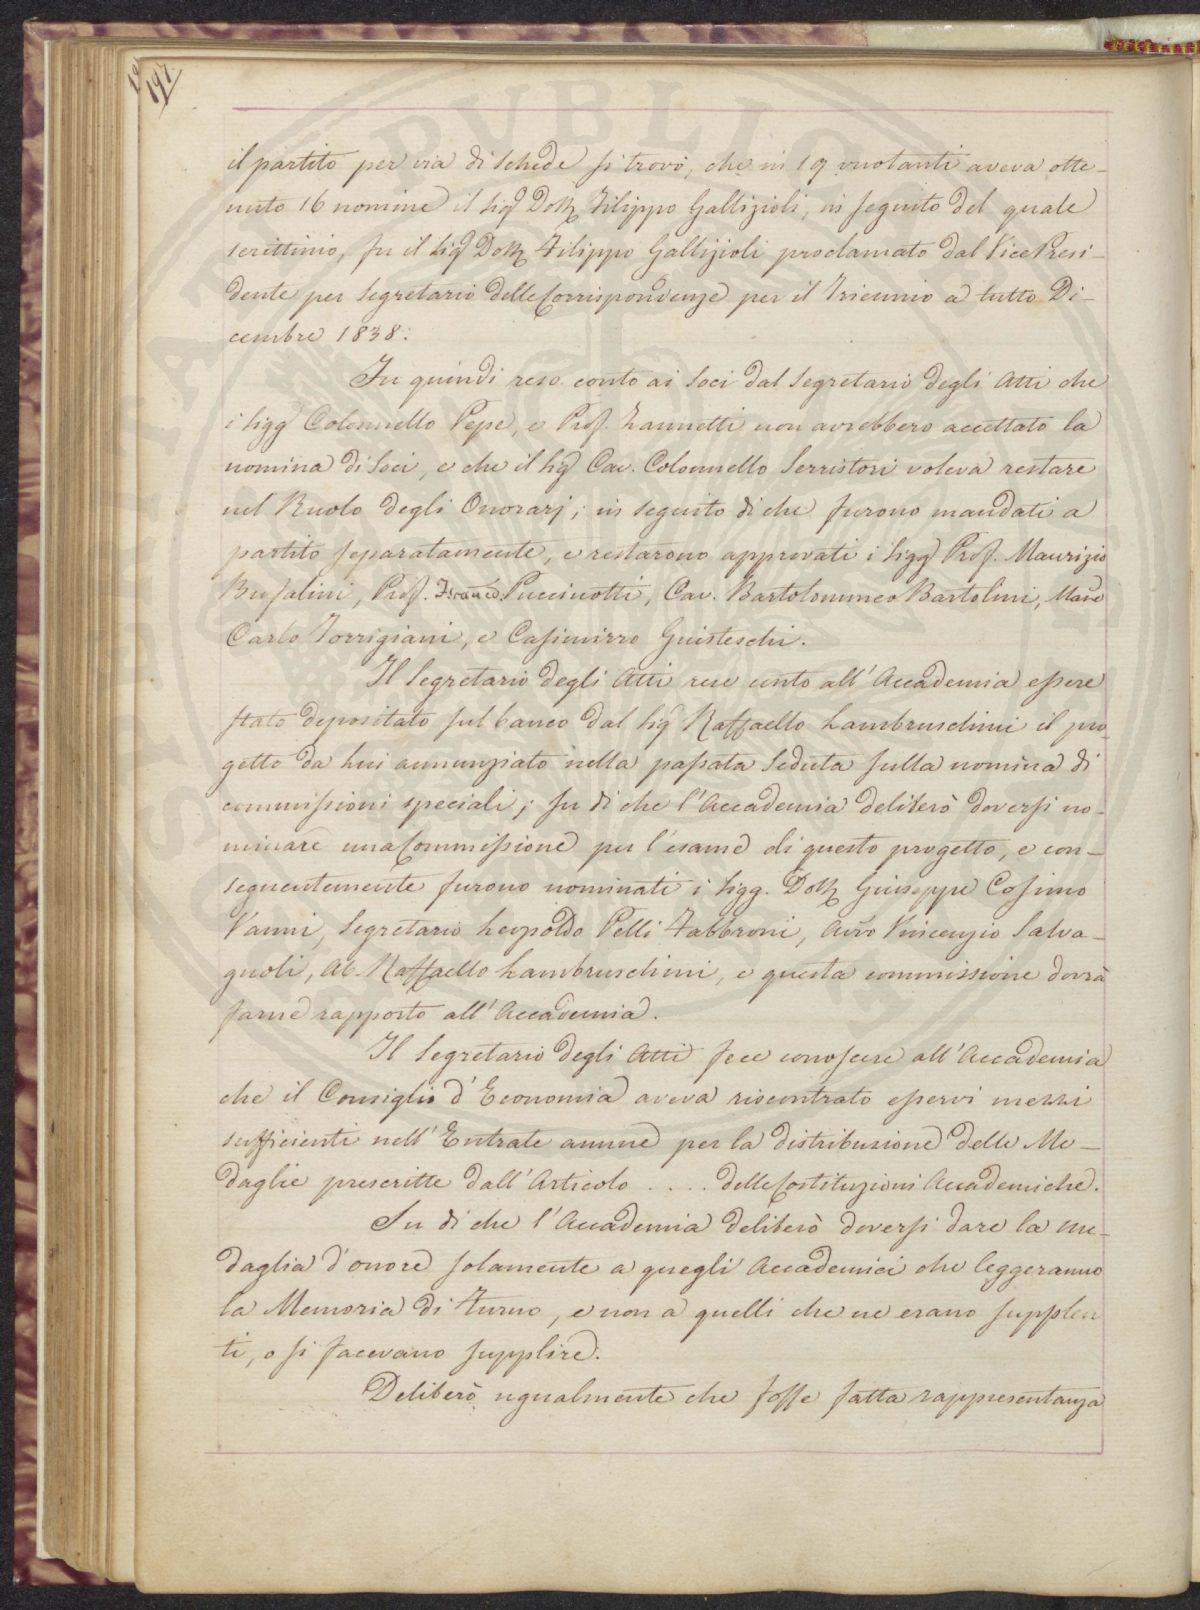 197.
il partito per via di schede si trovò, che in 19 vuotanti aveva otte-
nuto 16 nomine il Sigr Dottr Filippo Gallizioli, in seguito del quale
scrittinio, fu il Sigr Dottr Filippo Gallizioli proclamato dal Vice Presi-
dente per Segretario delle Corrispondenze per il Triennio a tutto Di-
cembre 1838.
Fu quindi reso conto ai Soci dal Segretario degli Atti che
i Sigg Colonnello Pepe, e Prof. Zannetti non avrebbero accettato la
nomina di Soci, e che il Sigr Cav. Colonnello Serristori voleva restare
nel Ruolo degli Onorarj; in seguito di che furono mandati a
partito separatamente, e restarono approvati i Sigg Prof. Maurizio
Bufalini, Prof. Franco. Puccinotti, Cav. Bartolommeo Bartolini, Marc
Carlo Torrigiani, e Casimirro Guisteschi.
Il Segretario degli Atti rese conto all'Accademia essere
stato depositato sul banco dal Sigr Raffaello Lambruschini il pro-
getto da lui annunziato nella passata Seduta sulla nomina di
commissioni speciali; su di che l'Accademia deliberò doversi no-
minare una Commissione per l'esame di questo progetto, e con-
seguentemente furono nominati i Sigg. Dottr Giuseppe Cosimo
Vanni, Segretario Leopoldo Pelli Fabbroni, Avvo Vincenzio Salva-
gnoli, Ab. Raffaello Lambruschini, e questa commissione dovrà
farne rapporto all'Accademia.
Il Segretario degli Atti fece conoscere all'Accademia
che il Consiglio d'Economia aveva riscontrato esservi mezzi
sufficienti nell'Entrate annue per la distribuzione delle Me-
daglie prescritte dall'Articolo . . . . delle Costituzioni Accademiche.
Su di che l'Accademia deliberò doversi dare la me-
daglia d'onore solamente a quegli Accademici che leggeranno
la Memoria di Turno, e non a quelli che ne erano supplen
ti, o si facevano supplire.
Deliberò ugualmente che fosse fatta rappresentanza